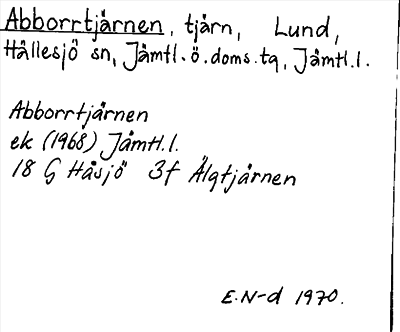 Abborrtjärnen, tjärn, Lund,
Hällesjö sn, Jämtl.ö.doms.tg, Jämtl.l.
Abborrtjärnen
ek (1968) Jämtl.l.
18 G Håsjö 3f Älgtjärnen
E.N-d 1970.